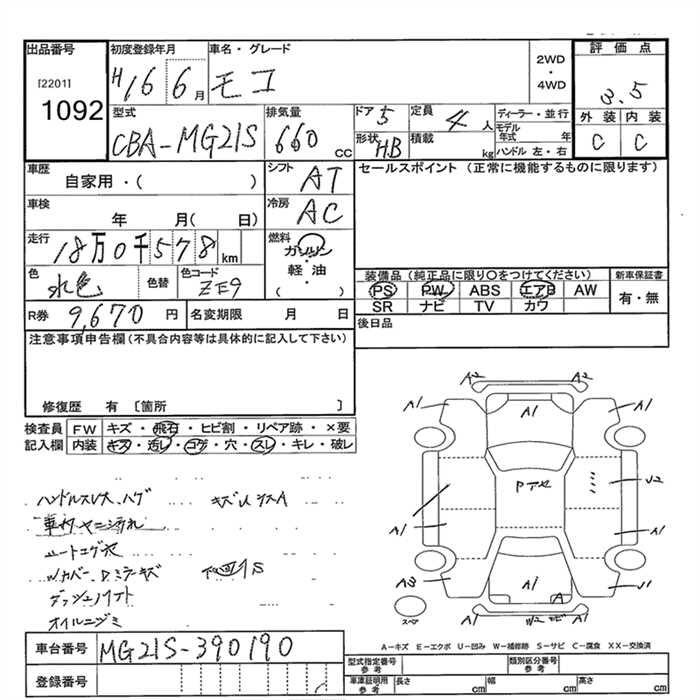 出品番号
[2201]
1092
初度登録年月
H16 6月
車名・グレード
モコ
2WD・4WD
評価点
3.5
型式
CBA-MG21S
排気量
660 cc
ドア 5
形状 HB
定員 4 人
積載 kg
ディーラー・並行
モデル年式 年
ハンドル 左・右
外装 内装
C C
車歴
自家用・( )
シフト AT
セールスポイント (正常に機能するものに限ります)
車検
年 月( 日)
冷房 AC
走行
18万0千578km
燃料
ガソリン
軽・油
( )
色 水色
色替
色コード ZE9
装備品 (純正品に限り○をつけてください)
新車保証書
PS PW ABS エアB AW
有・無
SR ナビ TV カワ
R券 9,670 円
名変期限 月 日
後日品
注意事項申告欄 (不具合内容等は具体的に記入して下さい)
修復歴 有 〔箇所 〕
検査員記入欄
FW キズ・飛石・ヒビ割・リペア跡・×要
内装 キズ・汚レ・コゲ・穴・スレ・キレ・破レ
ハンドルスレ大、ハゲ
車内ヤニ汚れ
シートコゲ穴
オイルニジミ
A2 A2
A1 A1 A1
Pアセ
U2
A1 A1
A3 A1 A U1
スペア
W2
A-キズ E-エクボ U-凹み W-補修跡 S-サビ C-腐食 XX-交換済
車台番号 MG21S-390190
登録番号
型式指定番号 参考
類別区分番号 参考
車庫証明用 参考
長さ cm
幅 cm
高さ cm